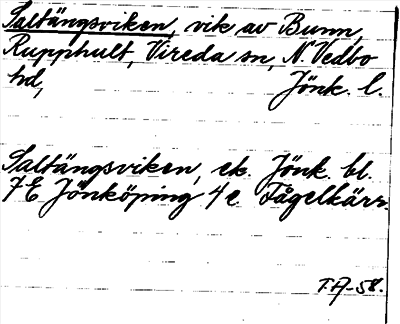 Saltängsviken, vik av Bunn,
Rupphult, Vireda sn, N. Vedbo
hd, Jönk. l.
Saltängsviken, ek. Jönk. bl.
7E Jönköping 4e Fågelkärr.
T.A-58.